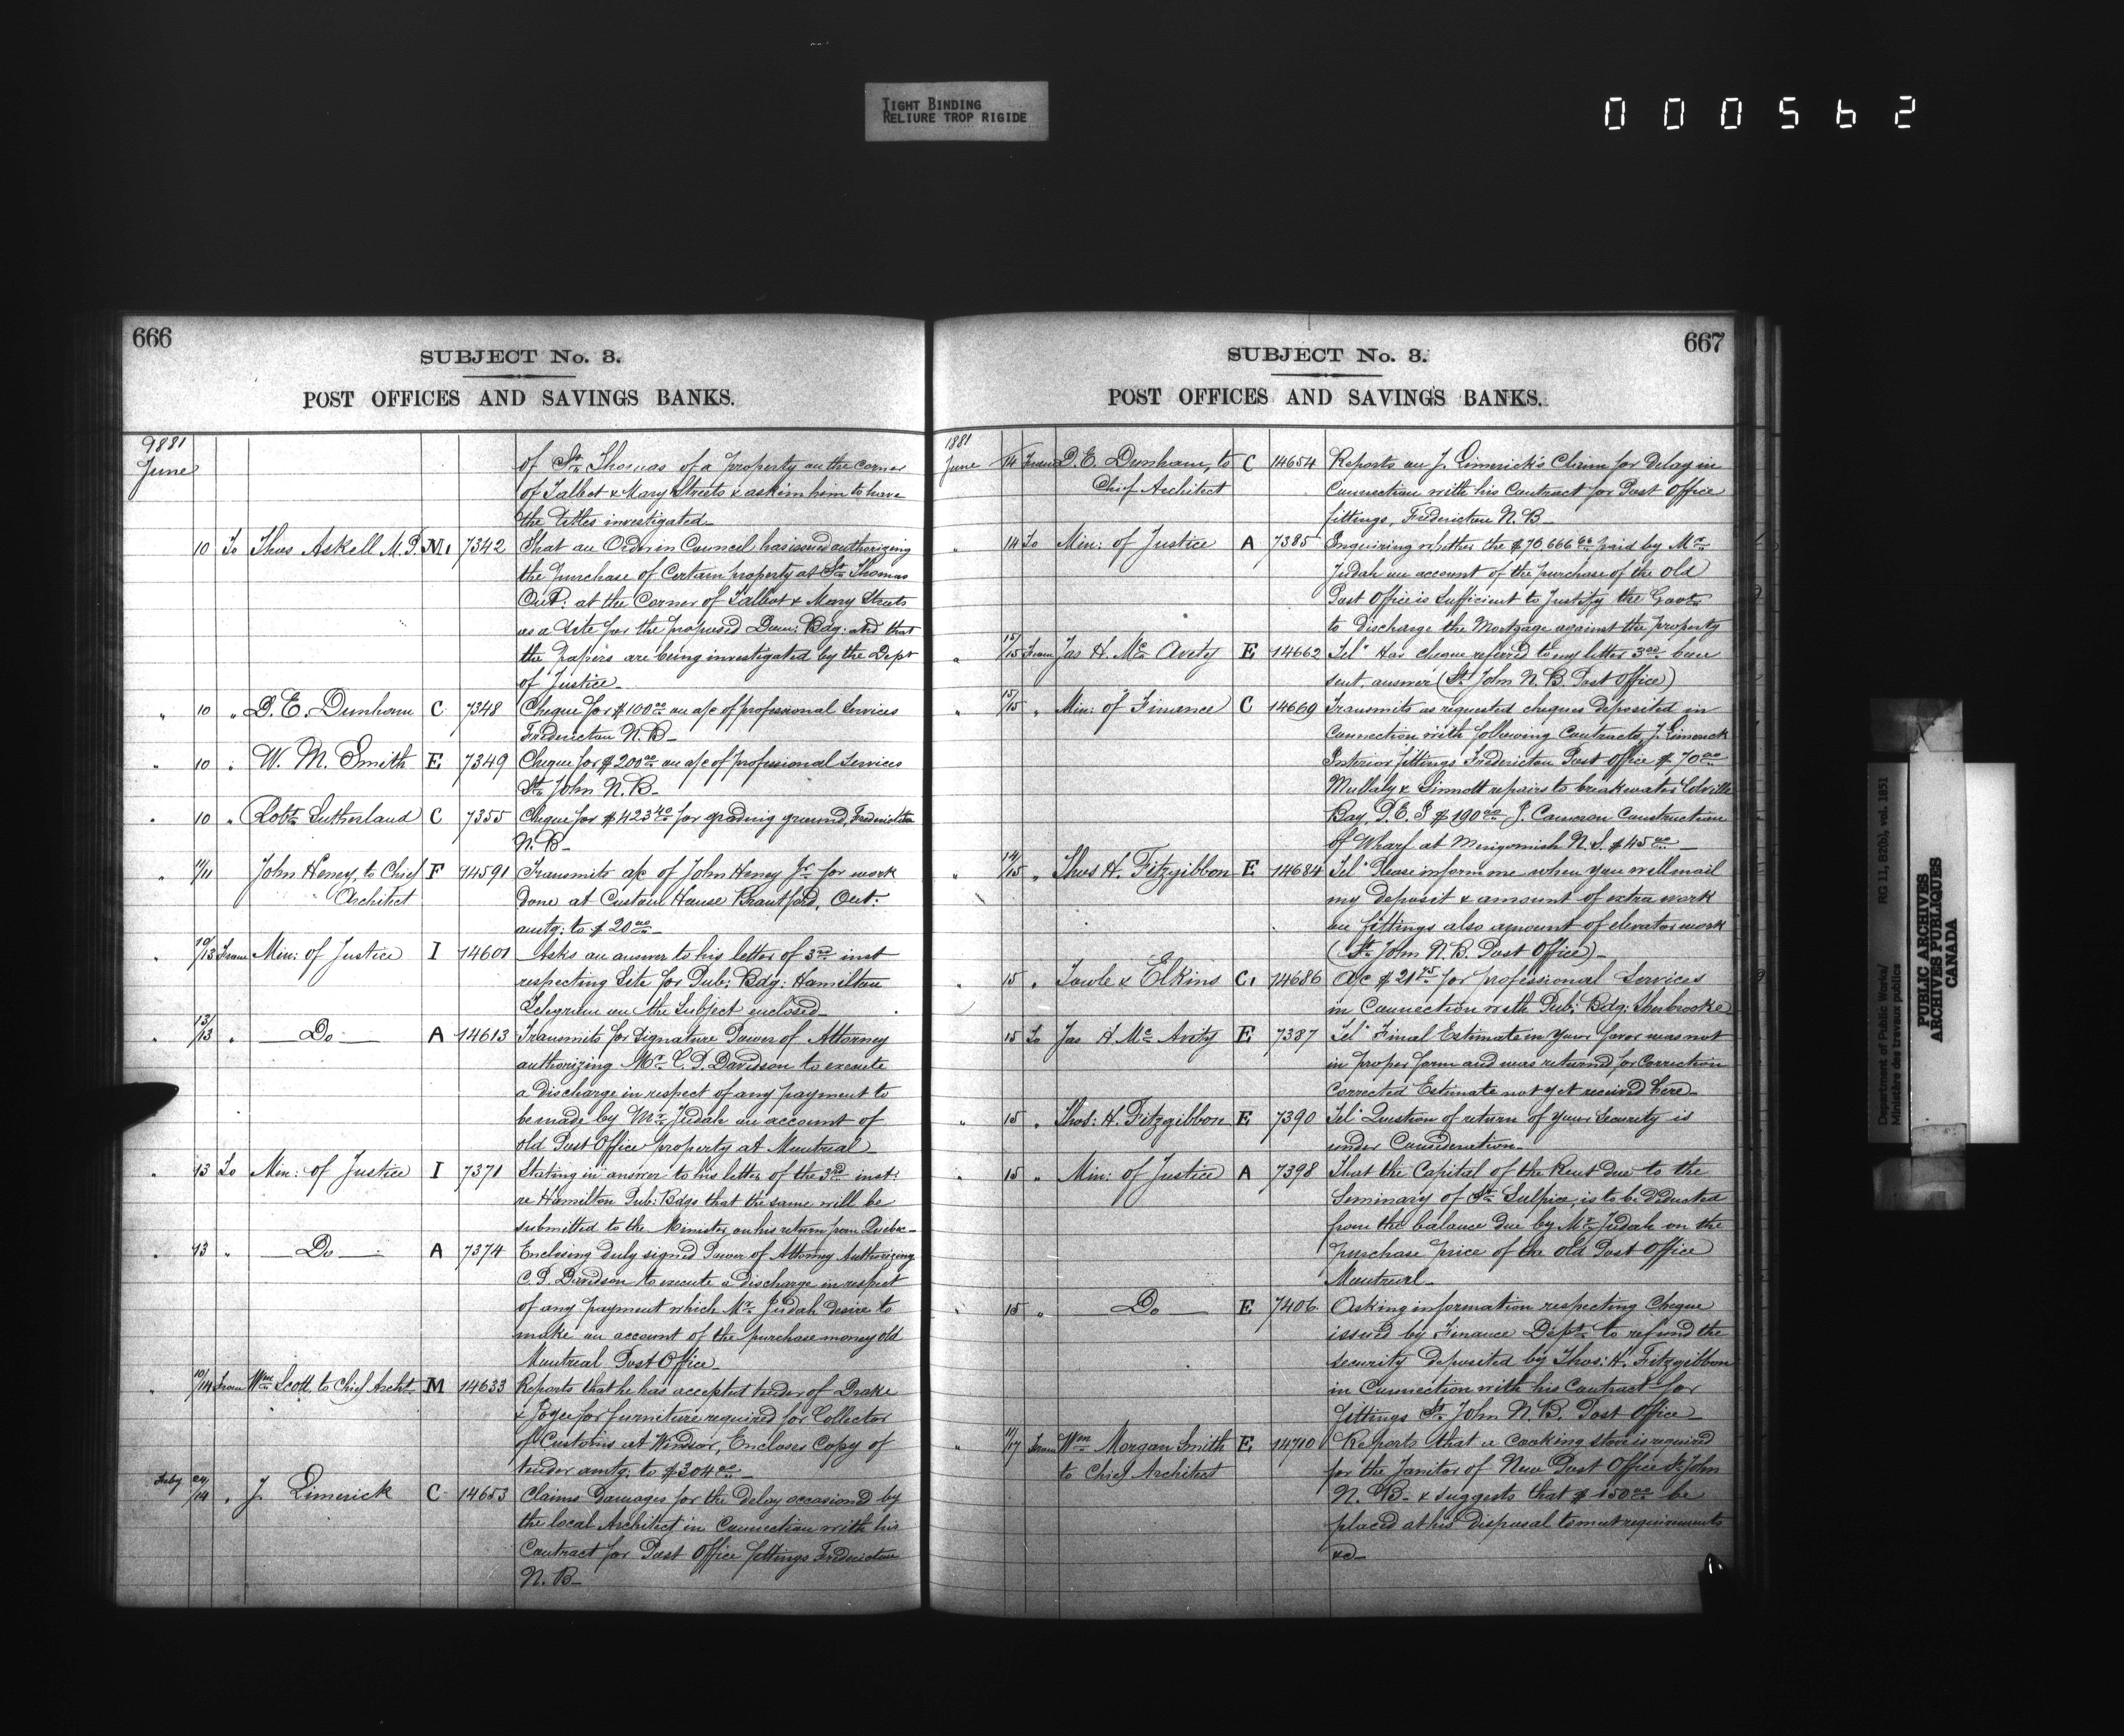 TIGHT BINDING
RELIURE TROP RIGIDE
000562
666
SUBJECT No. 3.
POST OFFICES AND SAVINGS BANKS.
1881
June
of St. Thomas of a property on the corner
of Talbot & Mary Streets & askin him to have
the titles investigated
10 To Thos Askell M.P. M. 7342 That an Order in Council has issued authorizing
the purchase of Certain property at St. Thomas
Ont: at the Corner of Talbot & Mary Streets
as a Site for the proposed Dom: Bdg: and that
the papers are being investigated by the Dept
of Justice
" 10 " D. E. Dunham C 7348 Cheque for $100.00 on a/c of professional Services
Fredericton N.B_
" 10 " W. M. Smith E 7349 Cheque for $200.00 on a/c of professional Services
St. John N.B_
" 10 " Robt. Sutherland C 7355 Cheque for $423.40 for grading ground, Fredericton
N.B_
" 11/11 John Heney, to Chief F 14591 Transmits a/c of John Heney Jr. for work
Architect done at Custom House Brantford, Ont:
amtg: to $20.00
" 10/13 From Min: of Justice I 14601 Asks an answer to his letter of 3rd inst
respecting Site for Pub: Bdg: Hamilton
Telegram on the Subject enclosed
" 13/13 " Do A 14613 Transmits for Signature Power of Attorney
authorizing Mr. C. P. Davidson to execute
a discharge in respect of any payment to
be made by Mr. Judah on account of
old Post Office property at Montreal
" 13 To Min: of Justice I 7371 Stating in answer to his letter of the 3rd inst:
re Hamilton Pub: Bdgs that the same will be
submitted to the Minister on his return from Quebec_
" 13 " Do A 7374 Enclosing duly signed Power of Attorney Authorizing
C. P. Davidson to execute a discharge in respect
of any payment which Mr. Judah desire to
make on account of the purchase money old
Montreal Post Office
" 10/14 From Wm Scott, to Chief Archt M 14633 Reports that he has accepted tender of Drake
& Joyce for furniture required for Collector
of Customs at Windsor, Encloses Copy of
tender amtg: to $304.00
24/14 " J. Limerick C 14653 Claims Damages for the delay occasioned by
the local Architect in Connection with his
Contract for Post Office fittings Fredericton
N.B_
667
SUBJECT No. 3.
POST OFFICES AND SAVINGS BANKS.
1881
June 14 From D. E. Dunham, to C 14654 Reports on J. Limerick's Claim for Delay in
Chief Architect Connection with his Contract for Post Office
fittings, Fredericton N.B_
" 14 To Min: of Justice A 7385 Enquiring whether the $76,666.66 paid by Mr.
Judah on account of the purchase of the old
Post Office is Sufficient to Justify the Govt.
to discharge the Mortgage against the property
" 15/15 From Jas H. McAvity E 14662 Tel: Has cheque referred to my letter 3rd been
sent, answer (St. John N.B. Post Office)
" 15/15 " Min: of Finance C 14669 Transmits as requested cheques deposited in
Connection with following Contracts, J. Limerick
Interior fittings Fredericton Post Office $70.00
Mullaly & Sinnott repairs to breakwater Colville
Bay, P.E.I $190.00 J. Cameron Construction
of Wharf at Merigomish N.S. $45.00
" 14/15 " Thos H. Fitzgibbon E 14684 Tel: Please inform me when you will mail
my deposit & amount of extra work
on fittings also amount of elevator work
(St. John N.B. Post Office)_
" 15 " Towle & Elkins C. 14686 A/c $21.75 for professional Services
in Connection with Pub: Bdg: Sherbrooke
15 To Jas H McAvity E 7387 Tel: Final Estimate in your favor was not
in proper form and was returned for Correction
Corrected Estimate not yet received here_
" 15 " Thos: H. Fitzgibbon E 7390 Tel: Question of return of your Security is
under Consideration_
" 15 " Min: of Justice A 7398 That the Capital of the Rent due to the
Seminary of St. Sulpice, is to be deducted
from the balance due by Mr. Judah on the
purchase price of the old Post Office
Montreal_
" 15 " Do E 7406 Asking information respecting Cheque
issued by Finance Dept. to refund the
security deposited by Thos: H. Fitzgibbon
in Connection with his Contract for
fittings St. John N.B. Post Office
" 11/17 From Wm Morgan Smith E 14710 Reports that a Cooking stove is required
to Chief Architect for the Janitor of New Post Office St. John
N.B. & suggests that $150.00 be
placed at his disposal to meet requirements
&c_
Department of Public Works/
Ministère des travaux publics
RG 11, B2(b), vol. 1851
PUBLIC ARCHIVES
ARCHIVES PUBLIQUES
CANADA